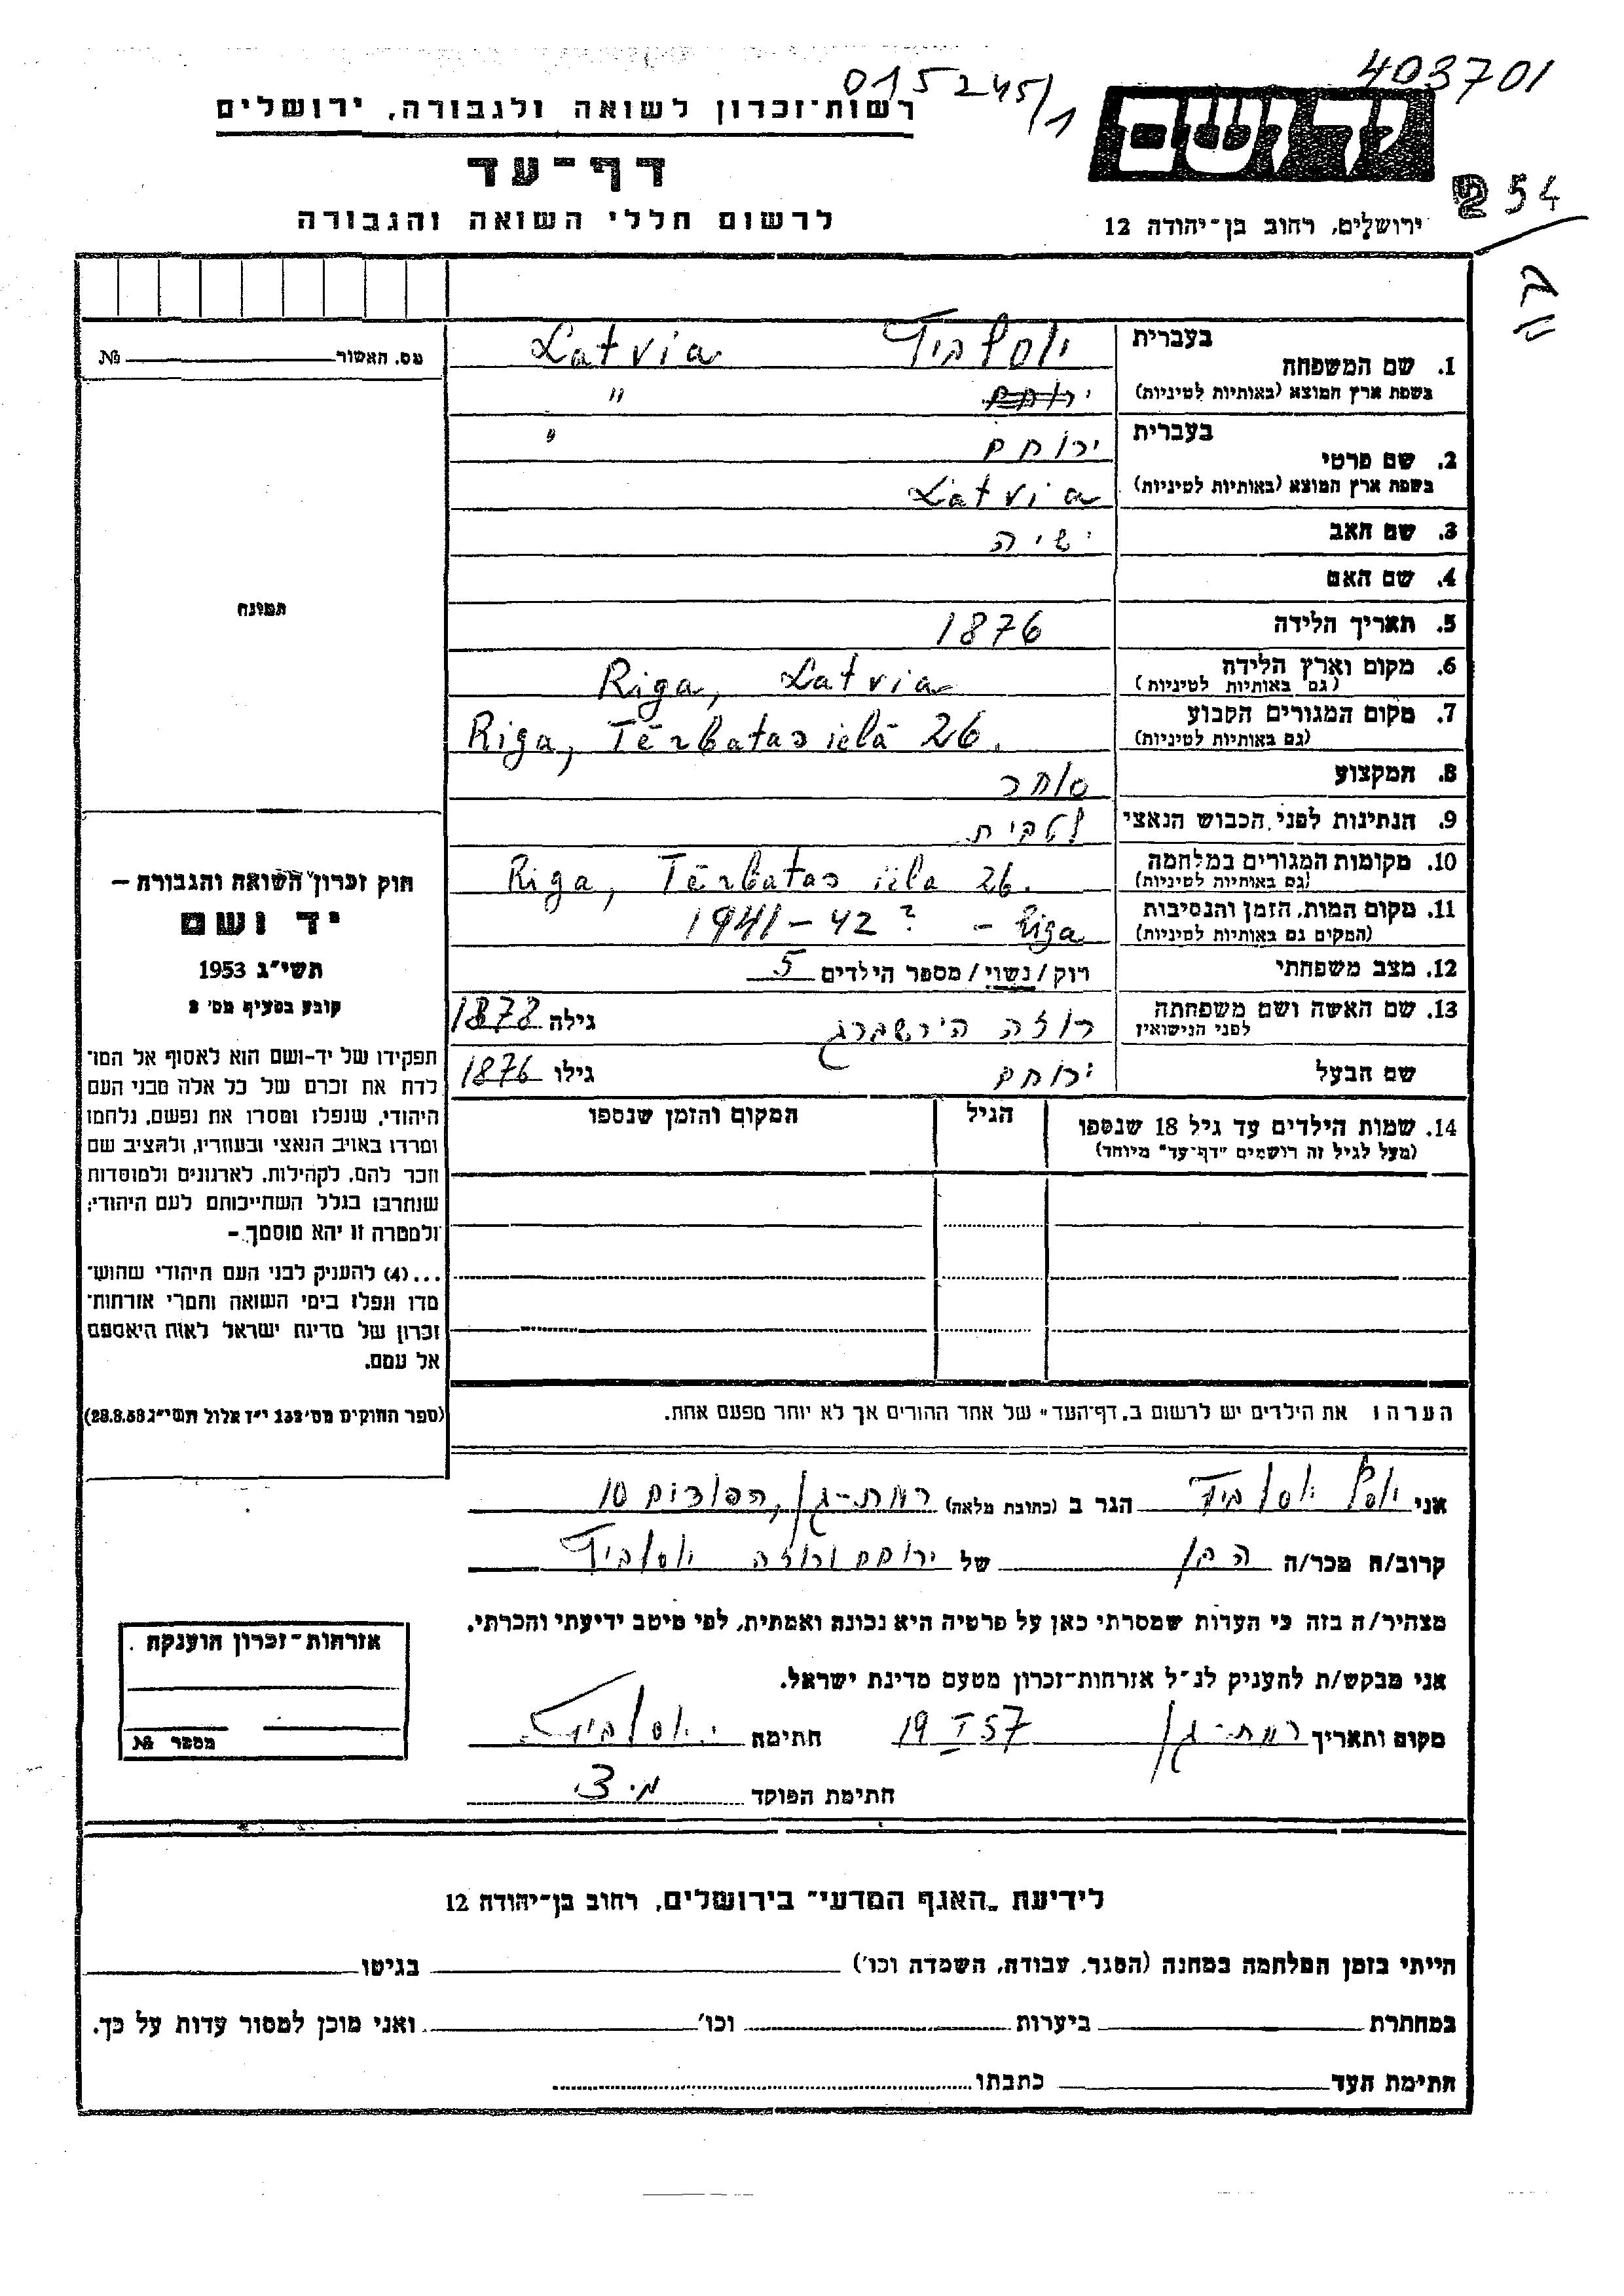 403701
015245/1
רשות־זכרון לשואה ולגבורה, ירושלים
יד ושם
דף־עד
254
לרשום חללי השואה והגבורה
ירושלים, רחוב בן־יהודה 12
בעברית
1. שם המשפחה
בשפת ארץ המוצא (באותיות לטיניות)
Latvia
"
בעברית
2. שם פרטי
בשפת ארץ המוצא (באותיות לטיניות)
ירוחם "
Latvia
3. שם האב ישיה
4. שם האם
5. תאריך הלידה 1876
6. מקום וארץ הלידה
(גם באותיות לטיניות)
Riga, Latvia
7. מקום המגורים הקבוע
(גם באותיות לטיניות)
Riga, Tērbatas ielā 26.
8. המקצוע סוחר
9. הנתינות לפני הכבוש הנאצי לטבית
10. מקומות המגורים במלחמה
(גם באותיות לטיניות)
Riga, Tērbatas iela 26.
11. מקום המות, הזמן והנסיבות
(המקום גם באותיות לטיניות)
1941-42 ? - Riga
12. מצב משפחתי רוק/נשוי/מספר הילדים 5
13. שם האשה ושם משפחתה
לפני הנישואין
רוזה הירשברג גילה 1878
שם הבעל ירוחם גילו 1876
14. שמות הילדים עד גיל 18 שנספו
(מעל לגיל זה רושמים "דף־עד" מיוחד)
הגיל
המקום והזמן שנספו
הערה: את הילדים יש לרשום ב„דף־העד" של אחד ההורים אך לא יותר מפעם אחת.
№ מס. האשור
תמונה
חוק זכרון השואה והגבורה –
יד ושם
תשי"ג 1953
קובע בסעיף מס' 2
תפקידו של יד-ושם הוא לאסוף אל המו־
לדת את זכרם של כל אלה מבני העם
היהודי, שנפלו ומסרו את נפשם, נלחמו
ומרדו באויב הנאצי ובעוזריו, ולהציב שם
וזכר להם, לקהילות, לארגונים ולמוסדות
שנחרבו בגלל השתייכותם לעם היהודי;
ולמטרה זו יהא מוסמך –
...(4) להעניק לבני העם היהודי שהוש־
מדו ונפלו בימי השואה והמרי אזרחות־
זכרון של מדינת ישראל לאות היאספם
אל עמם.
(ספר החוקים מס' 132 י"ז אלול תשי"ג 28.8.53)
אני הגר ב (כתובת מלאה) רמת-גן, 10
קרוב/ה מכר/ה הבן של ירוחם ורוזה
מצהיר/ה בזה כי העדות שמסרתי כאן על פרטיה היא נכונה ואמתית, לפי מיטב ידיעתי והכרתי.
אני מבקש/ת להעניק לנ"ל אזרחות־זכרון מטעם מדינת ישראל.
מקום ותאריך רמת-גן 19 I 57 חתימה
חתימת הפוקד מ. צ.
אזרחות־זכרון הוענקה
מספר №
לידיעת „האגף המדעי" בירושלים, רחוב בן־יהודה 12
הייתי בזמן המלחמה במחנה (הסגר, עבודה, השמדה וכו') בגיטו
במחתרת ביערות וכו' ואני מוכן למסור עדות על כך.
חתימת העד כתבתו